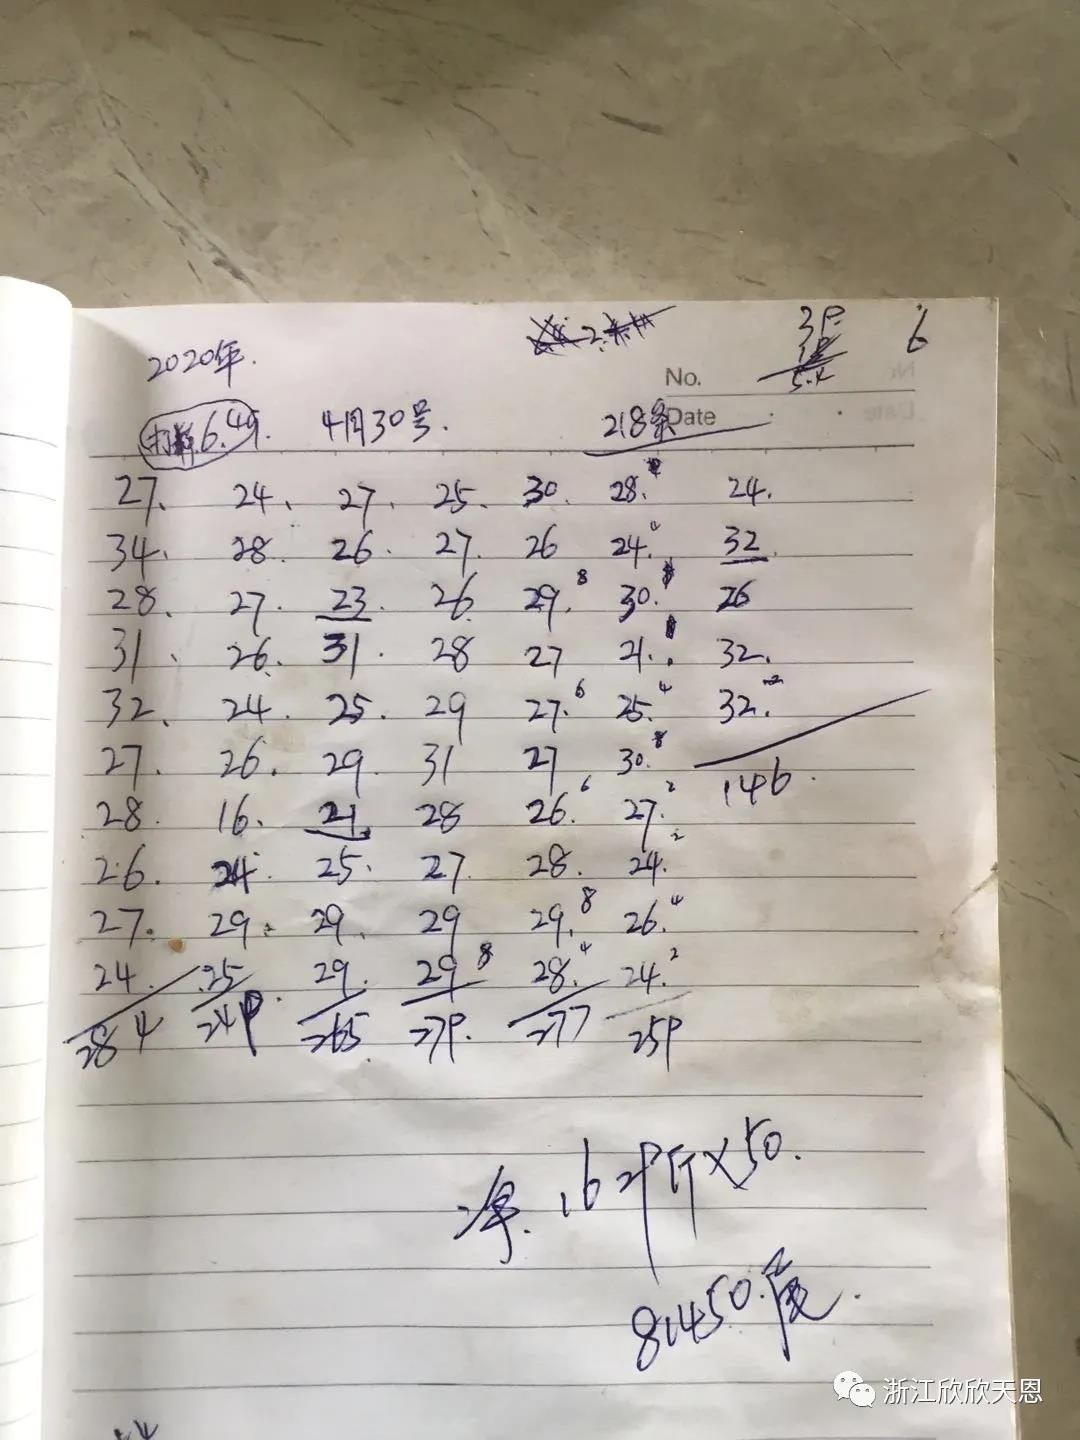 2020年.
3P. 6
No.
6.49. 4月30号. 218条 Date
27. 24. 27. 25. 30. 28. 24.
34. 28. 26. 27. 26 24. 32.
28. 27. 23. 26 29.8 30. 26
31. 26. 31. 28 27 21. 32.
32. 24. 25. 29 27.6 25.4 32.2
27. 26. 29. 31 27 30.8
146.
28. 16. 21. 28 26.6 27.2
26. 24. 25. 27. 28. 24.2
27. 29. 29. 29 29.8 26.4
24. 25 29. 29.8 28.4 24.2
284 249. 265 279. 277 259
净.1629斤×50.
81450.尾.
浙江欣欣天恩